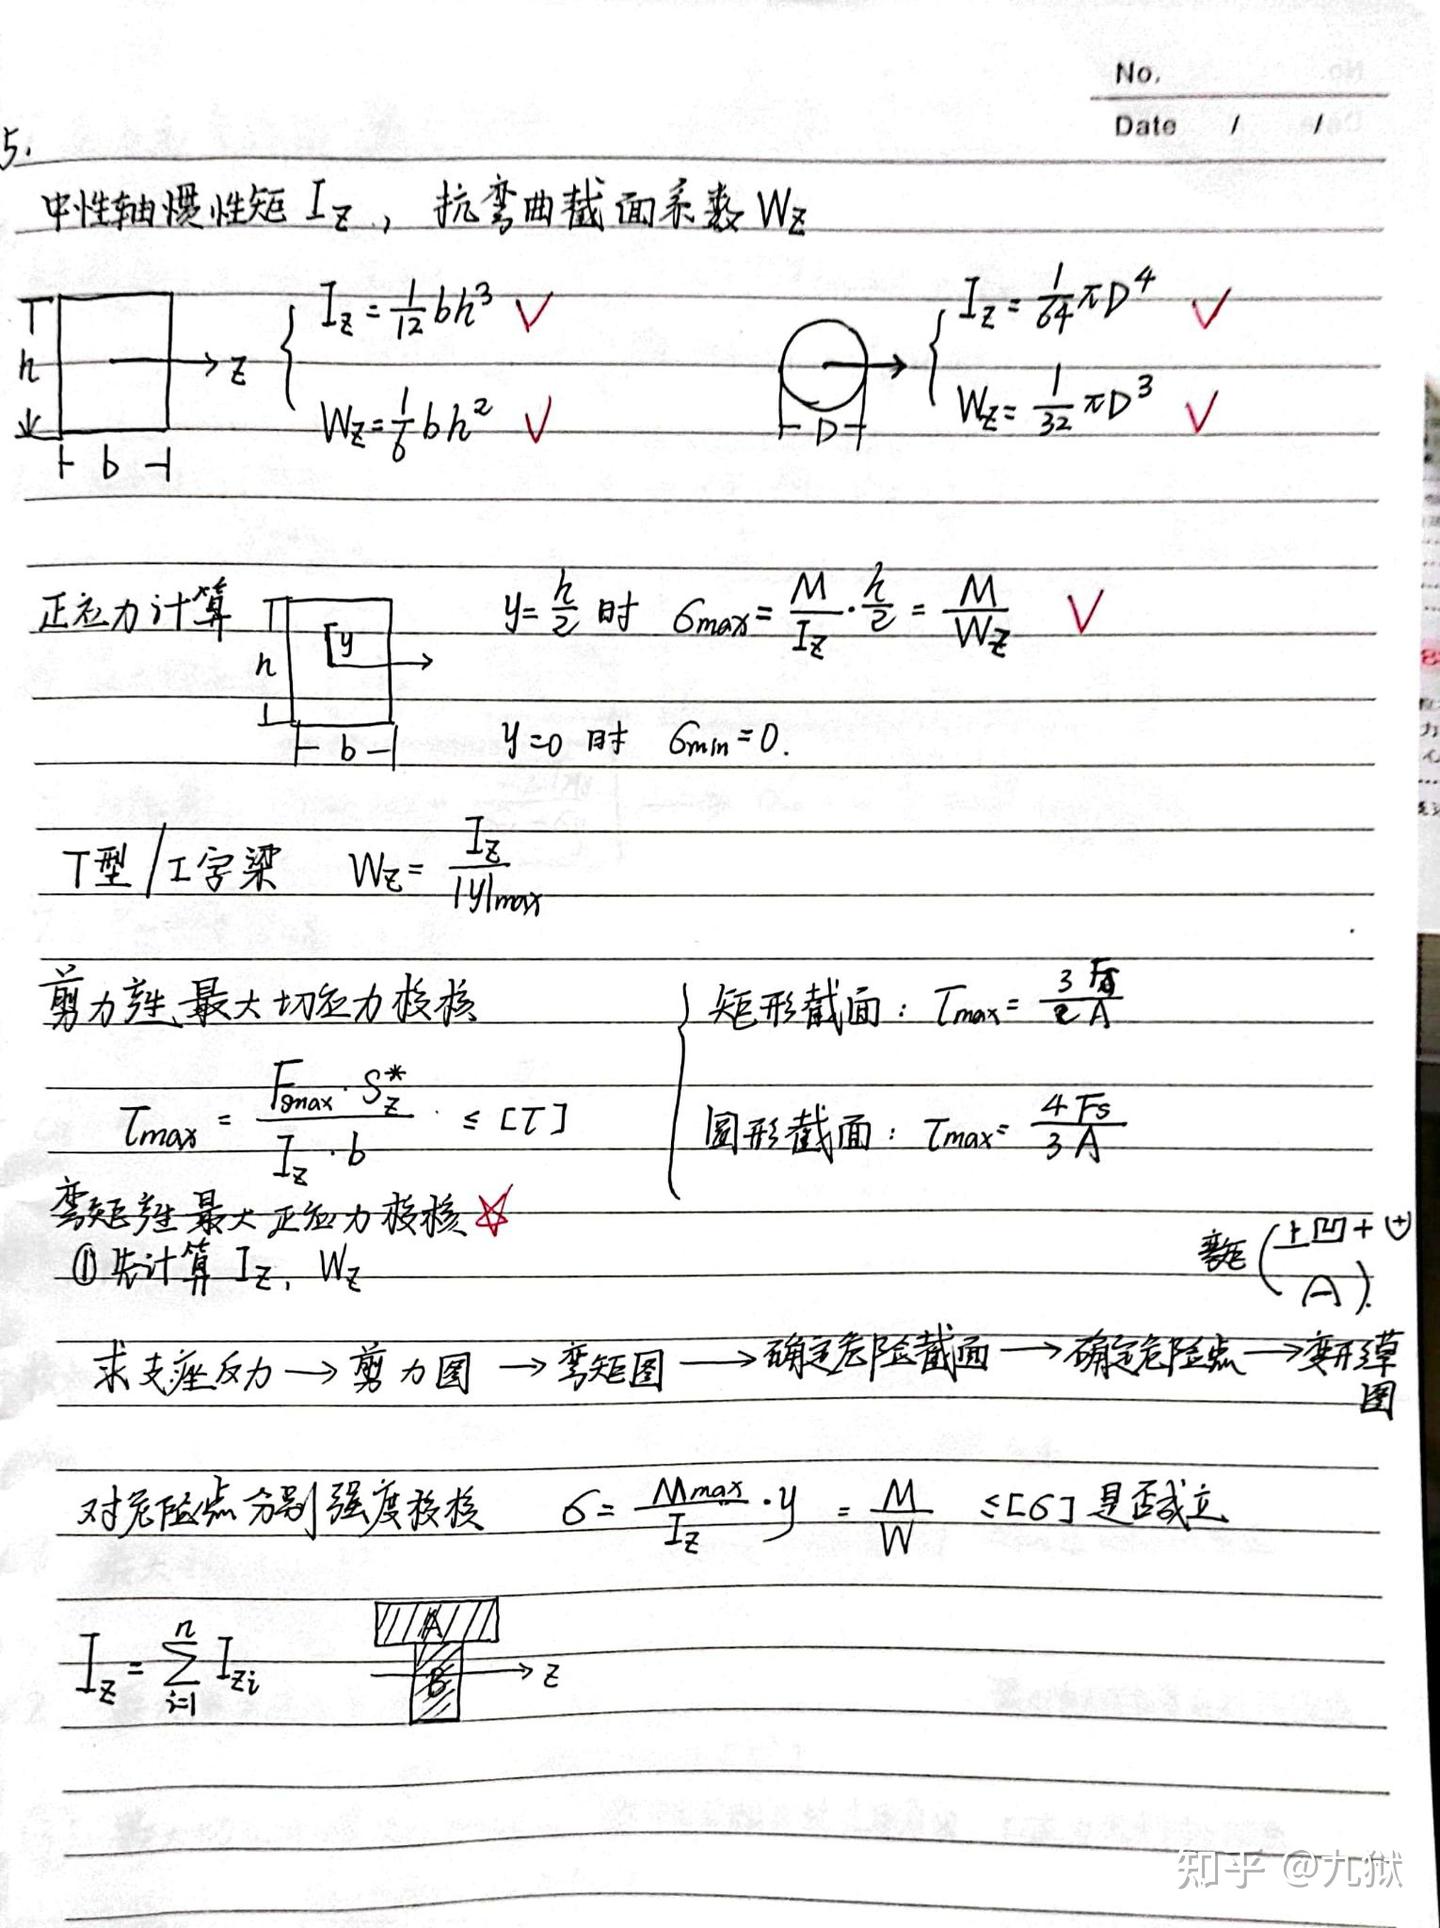 No.
Date / /
5.
中性轴惯性矩 I_z , 抗弯曲截面系数 W_z
h
b
z
I_z = 1/12 bh³ √
W_z = 1/6 bh² √
D
I_z = 1/64 πD⁴ √
W_z = 1/32 πD³ √
正应力计算
h
y
b
y = h/2 时 σmax = M/I_z · h/2 = M/W_z √
y=0 时 σmin = 0.
T型/工字梁 W_z = I_z/|y|max
剪力产生最大切应力校核
τmax = Fsmax · S_z*/I_z · b ≤ [τ]
矩形截面: τmax = 3Fs/2A
圆形截面: τmax = 4Fs/3A
弯矩产生最大正应力校核 ☆
① 先计算 I_z, W_z
弯矩 (上凹 +
求支座反力 → 剪力图 → 弯矩图 → 确定危险截面 → 确定危险点 → 变形草图
对危险点分别强度校核 σ = Mmax/I_z · y = M/W ≤ [σ] 是否成立
I_z = Σ(i=1, n) I_zi
A
B
z
知乎 @九狱